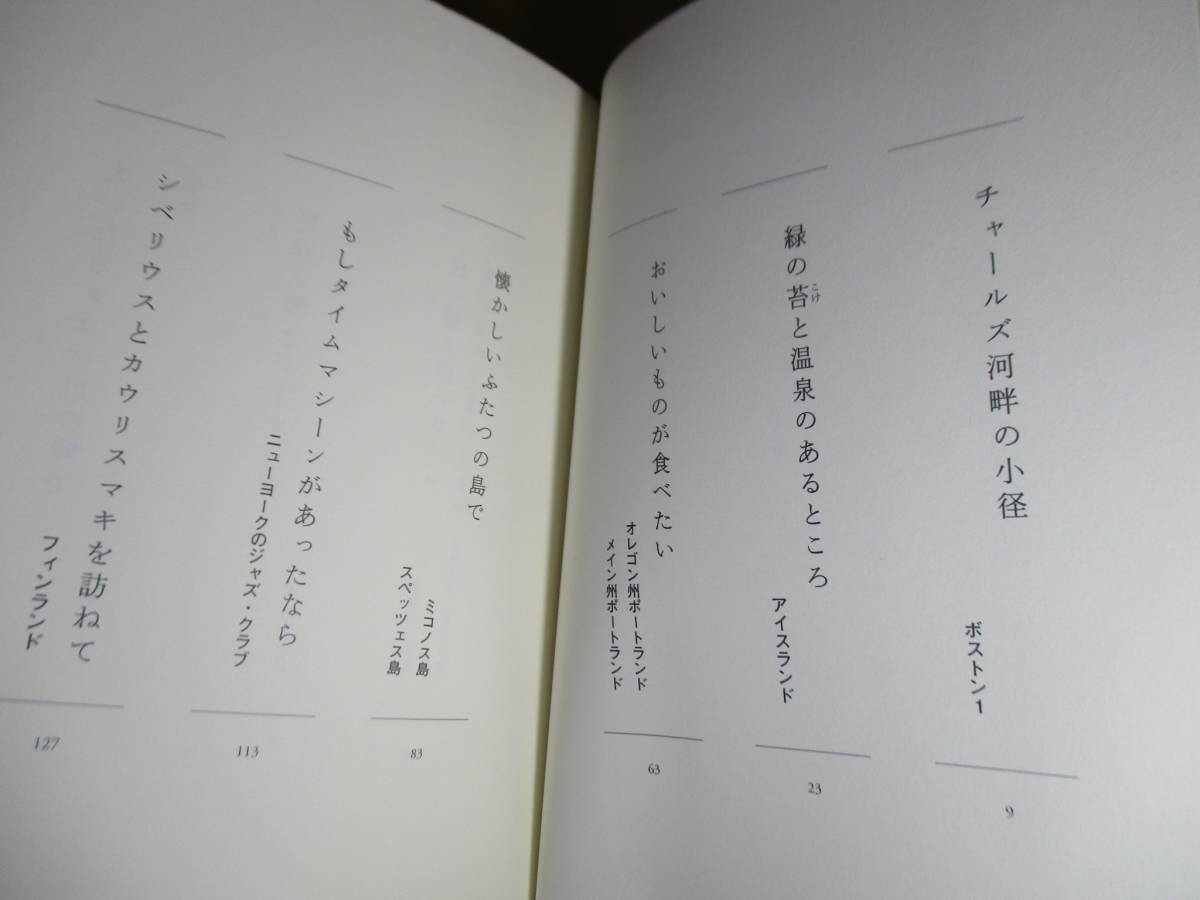 チャールズ河畔の小径
ボストン1
9
緑の苔と温泉のあるところ
こけ
アイスランド
23
おいしいものが食べたい
オレゴン州ポートランド
メイン州ポートランド
63
懐かしいふたつの島で
ミコノス島
スペッツェス島
83
もしタイムマシーンがあったなら
ニューヨークのジャズ・クラブ
113
シベリウスとカウリスマキを訪ねて
フィンランド
127